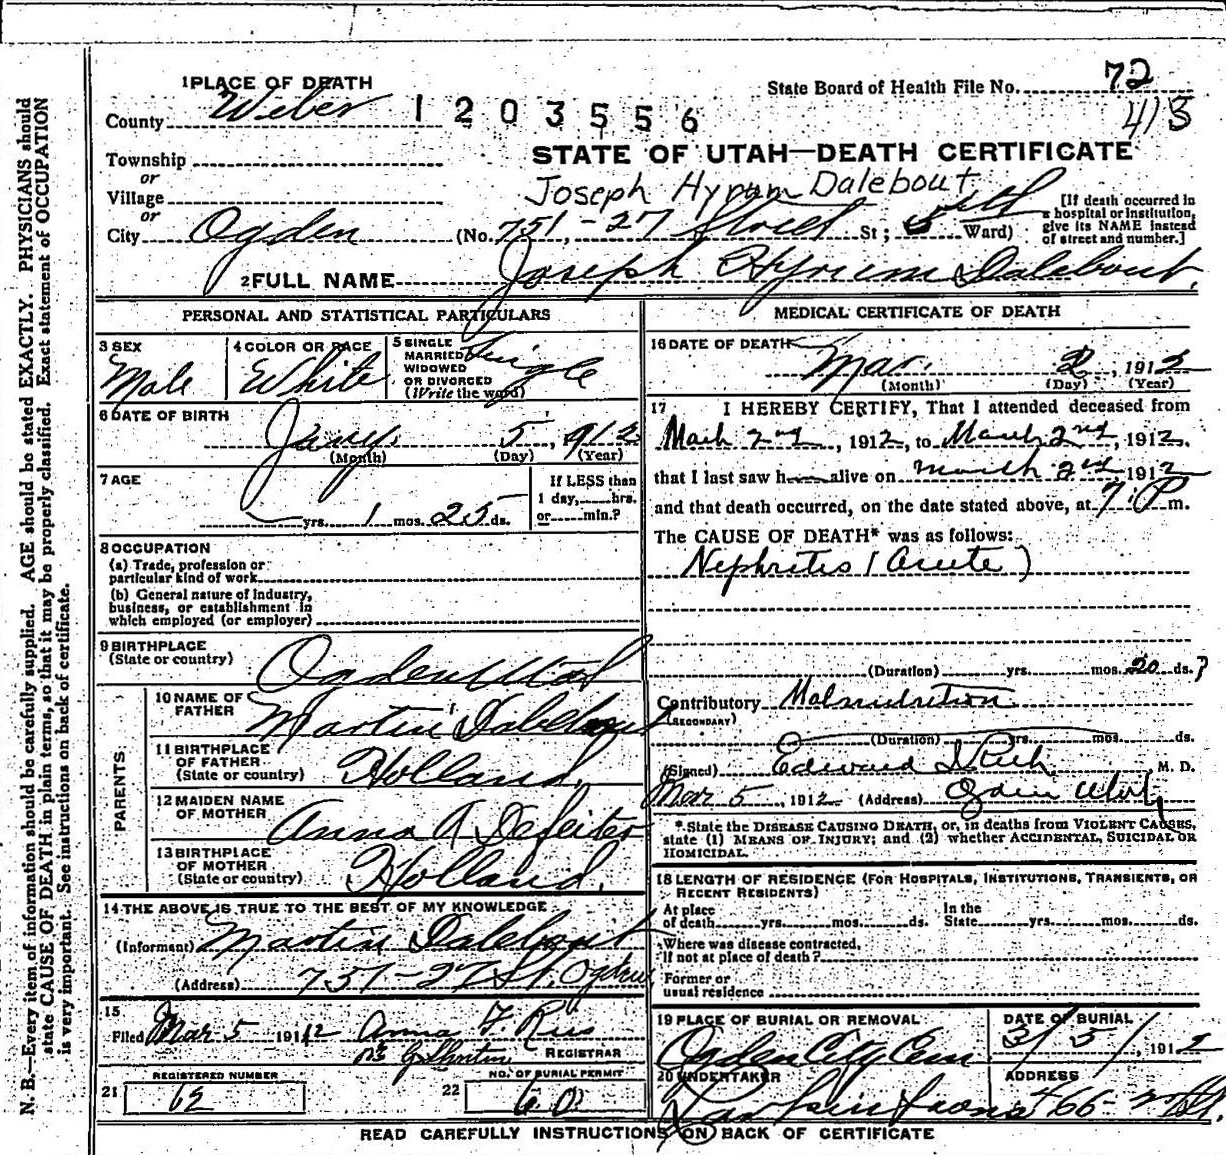 1 PLACE OF DEATH
State Board of Health File No. 72
413
County Weber
1203556
STATE OF UTAH—DEATH CERTIFICATE
Township
or
Village
or
Joseph Hyrum Dalebout
City Ogden (No. 751-27 Street St; 5th Ward)
[If death occurred in
a hospital or institution,
give its NAME instead
of street and number.]
2 FULL NAME Joseph Hyrum Dalebout.
PERSONAL AND STATISTICAL PARTICULARS
3 SEX
Male
4 COLOR OR RACE
White
5 SINGLE
MARRIED
WIDOWED
OR DIVORCED
(Write the word)
Single
6 DATE OF BIRTH
Jany. 5, 1912
(Month) (Day) (Year)
7 AGE
yrs. 1 mos. 25 ds.
If LESS than
1 day, hrs.
or min.?
8 OCCUPATION
(a) Trade, profession or
particular kind of work
(b) General nature of industry,
business, or establishment in
which employed (or employer)
9 BIRTHPLACE
(State or country)
Ogden Utah
PARENTS
10 NAME OF
FATHER
Martin Dalebout
11 BIRTHPLACE
OF FATHER
(State or country)
Holland.
12 MAIDEN NAME
OF MOTHER
Anna A Defeiter
13 BIRTHPLACE
OF MOTHER
(State or country)
Holland.
14 THE ABOVE IS TRUE TO THE BEST OF MY KNOWLEDGE
(Informant) Martin Dalebout
(Address) 751-27 St. Ogden
15
Filed Mar 5 1912 Anna F. Rees
REGISTRAR
21 REGISTERED NUMBER
62
22 NO. OF BURIAL PERMIT
60
MEDICAL CERTIFICATE OF DEATH
16 DATE OF DEATH
Mar. 2, 1912
(Month) (Day) (Year)
17 I HEREBY CERTIFY, That I attended deceased from
Mach 2nd, 1912, to March 2nd, 1912,
that I last saw h alive on March 2nd 1912
and that death occurred, on the date stated above, at 7 P m.
The CAUSE OF DEATH* was as follows:
Nephritis (Acute)
(Duration) yrs. mos. 20 ds. ?
Contributory Malnutrition
(SECONDARY)
(Duration) yrs. mos. ds.
(Signed) Edward I Rich M. D.
Mar 5, 1912 (Address) Ogden Utah
* State the DISEASE CAUSING DEATH, or, in deaths from VIOLENT CAUSES,
state (1) MEANS OF INJURY; and (2) whether ACCIDENTAL, SUICIDAL OR
HOMICIDAL.
18 LENGTH OF RESIDENCE (FOR HOSPITALS, INSTITUTIONS, TRANSIENTS, OR
RECENT RESIDENTS)
At place
of death yrs. mos. ds.
In the
State yrs. mos. ds.
Where was disease contracted,
if not at place of death?
Former or
usual residence
19 PLACE OF BURIAL OR REMOVAL
Ogden City Cem
DATE OF BURIAL
3/5/, 1912
20 UNDERTAKER
ADDRESS
READ CAREFULLY INSTRUCTIONS ON BACK OF CERTIFICATE
N. B.—Every item of information should be carefully supplied. AGE should be stated EXACTLY. PHYSICIANS should
state CAUSE OF DEATH in plain terms, so that it may be properly classified. Exact statement of OCCUPATION
is very important. See instructions on back of certificate.